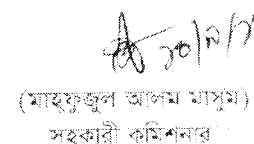 (মাহফুজুল আলম মাসুম)
সহকারী কমিশনার